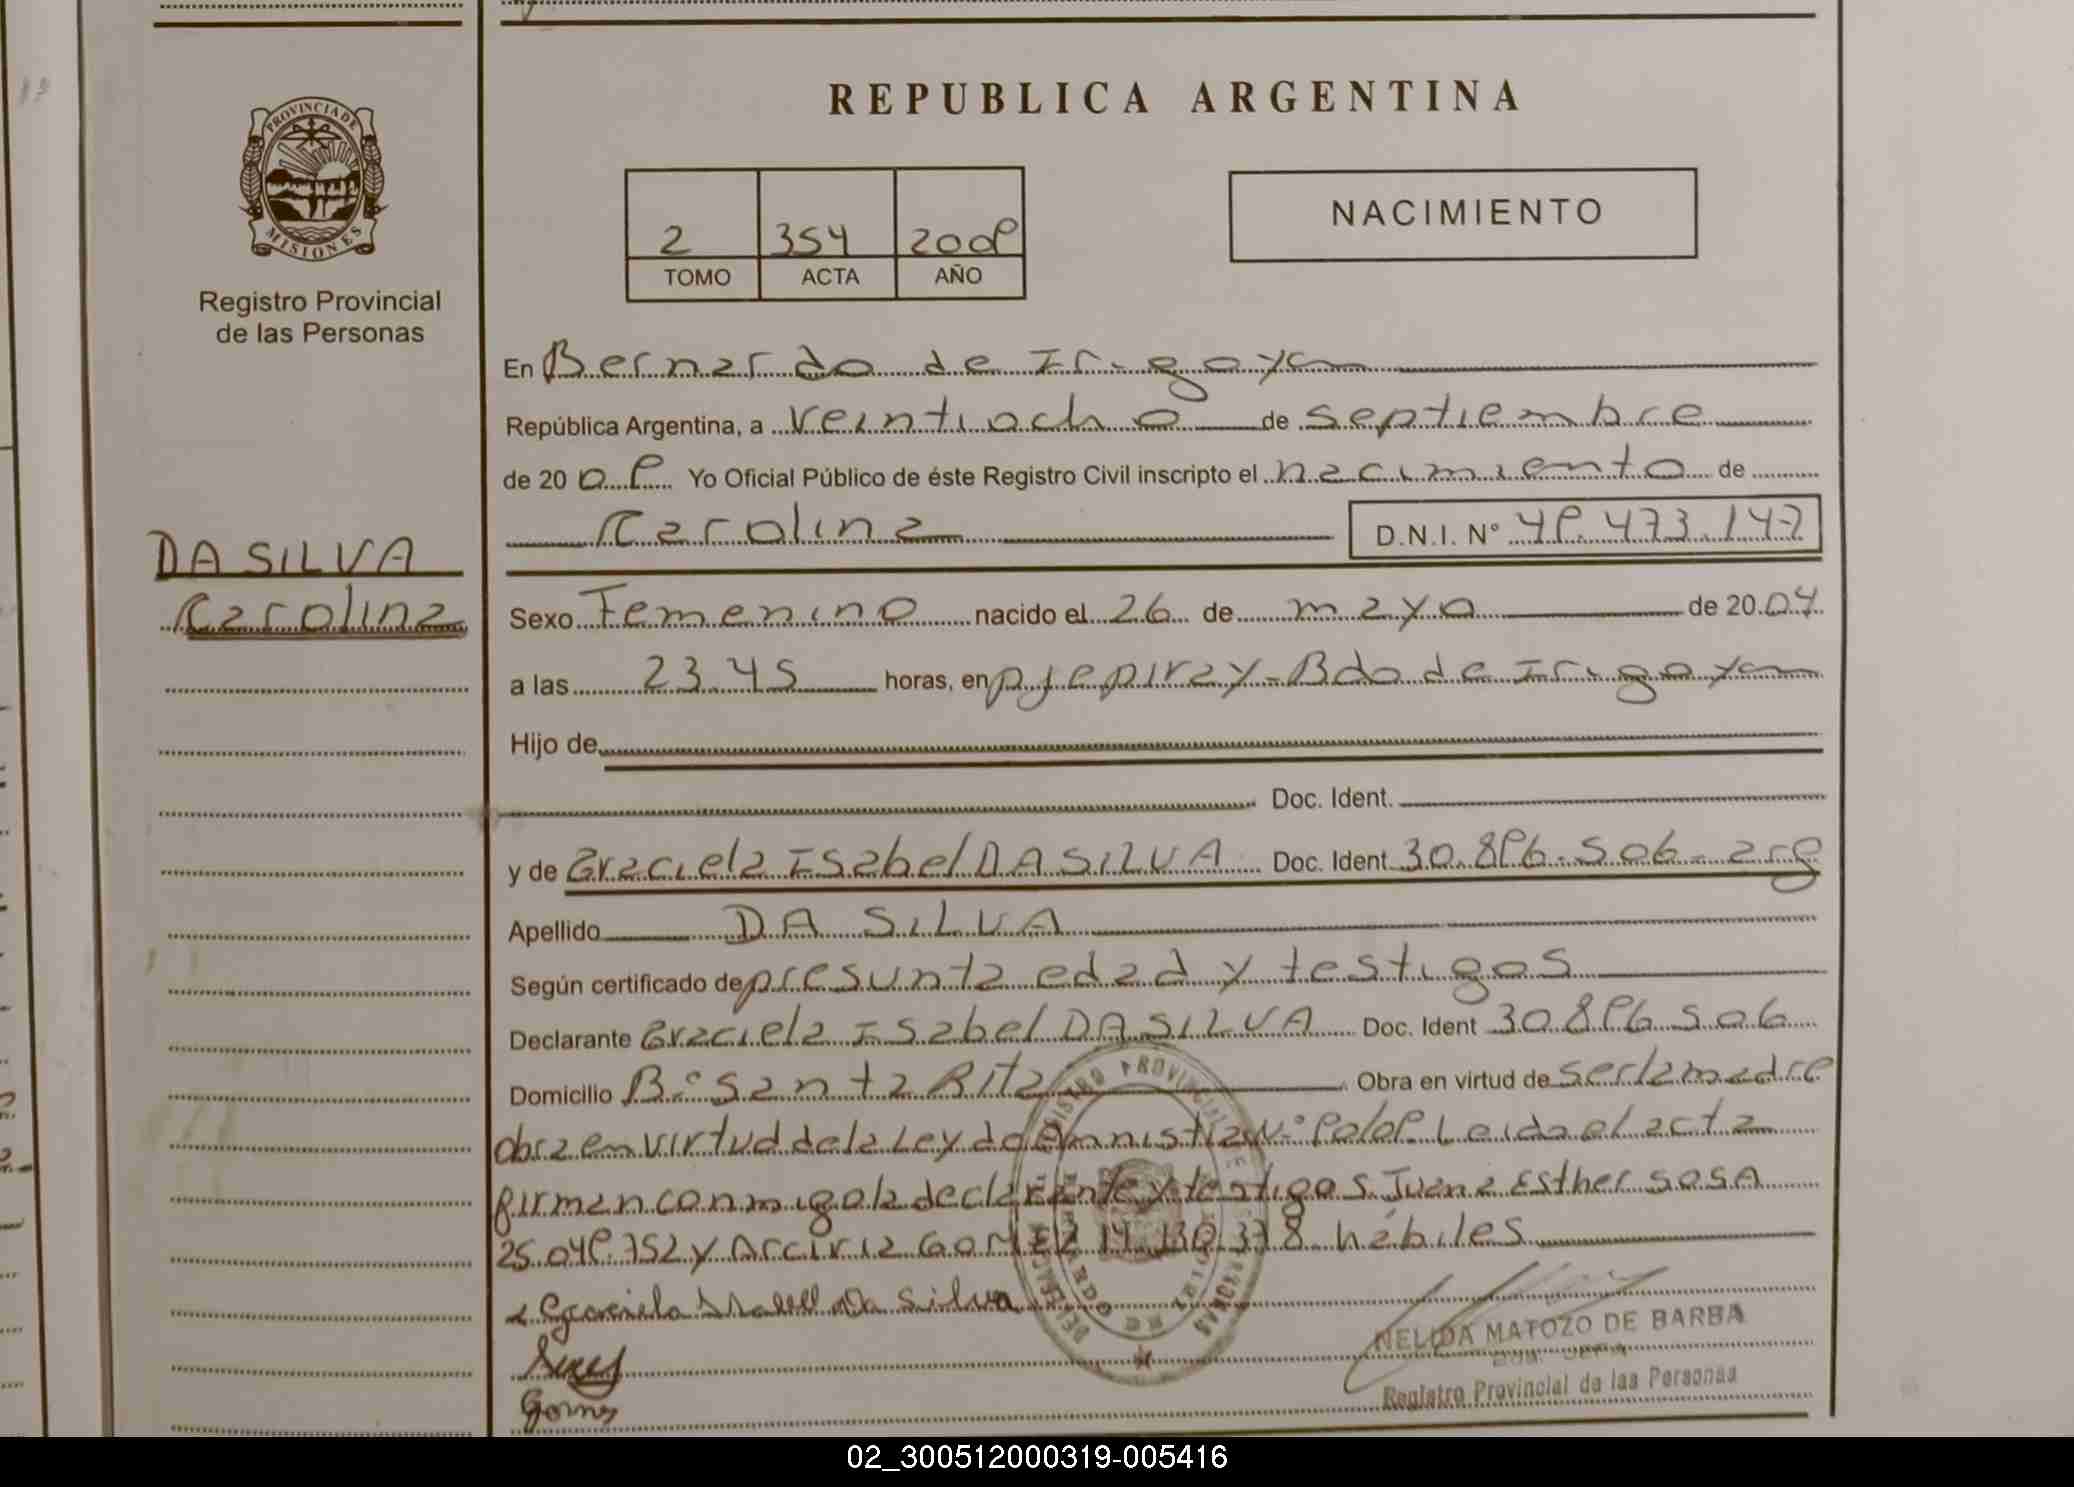 REPUBLICA ARGENTINA
PROVINCIA DE
MISIONES
Registro Provincial
de las Personas
2 354 2009
TOMO ACTA AÑO
NACIMIENTO
En Bernardo de Irigoyen
República Argentina, a Veintiocho de septiembre
de 20 09 Yo Oficial Público de éste Registro Civil inscripto el nacimiento de
Carolina D.N.I. N° 49.473.147
DA SILVA
Carolina
Sexo Femenino nacido el 26 de mayo de 20 04
a las 23.45 horas, en pjepiray-Bdo de Irigoyen
Hijo de
Doc. Ident.
y de Graciela Isabel DA SILVA Doc. Ident 30.896.506-arg
Apellido DA SILVA
Según certificado de presunta edad y testigos
Declarante Graciela Isabel DA SILVA Doc. Ident 30.896.506
Domicilio B° Santa Rita Obra en virtud de ser la madre
obra en virtud de la Ley de Amnistia N° 90/09. Leida el acta
firman conmigo la declarante y testigos Juana Esther SOSA
25.049.752 y Arciria GOMEZ 14.130.378 hábiles
Graciela Isabel Da Silva
Gomez
NELIDA MATOZO DE BARBA
Registro Provincial de las Personas
02_300512000319-005416